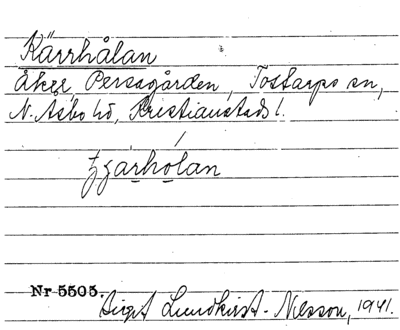 Kärrhålan
Åker, Persagården, Tostarps sn,
N. Åsbo hd, Kristianstads l.
tjärhólan
Nr 5505.
Birgit Lundkvist-Nilsson, 1941.